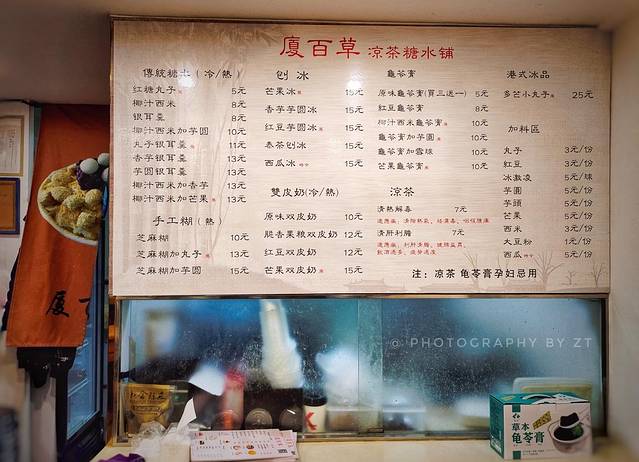 廈百草 凉茶糖水铺
傳統糖水(冷/熱)
红糖丸子 5元
椰汁西米 8元
银耳羹 8元
椰汁西米加芋圆 10元
丸子银耳羹 11元
香芋银耳羹 13元
芋圆银耳羹 13元
椰汁西米加香芋 13元
椰汁西米加芒果 13元
手工糊(熱
芝麻糊 10元
芝麻糊加丸子 13元
芝麻糊加芋圆 15元
刨冰
芒果冰 15元
香芋芋圆冰 15元
红豆芋圆冰 15元
泰茶刨冰 15元
西瓜冰 15元
雙皮奶(冷/熱)
原味双皮奶 10元
脆香果粮双皮奶 12元
红豆双皮奶 12元
芒果双皮奶 15元
龜苓膏
原味龟苓膏(買三送一) 5元
红豆龟苓膏 8元
椰汁西米龟苓膏 10元
龟苓膏加芋圆 10元
龟苓膏加雪球 10元
芒果龟苓膏 10元
凉茶
清熱解毒 7元
清肝利膽 7元
港式冰品
多芒小丸子 25元
加料區
丸子 3元/份
红豆 3元/份
冰激凌 5元/球
芋圆 5元/份
芋頭 5元/份
芒果 5元/份
西米 3元/份
大豆粉 1元/份
西瓜 5元/份
注：凉茶 龟苓膏孕妇忌用
© PHOTOGRAPHY BY ZT
厦
草本
龟苓膏